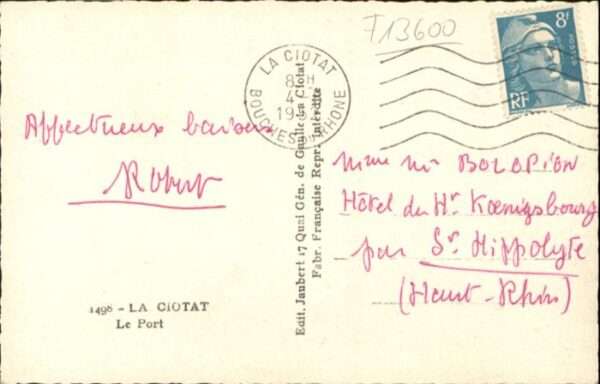 F13600
8F
RF
LA CIOTAT
BOUCHES DU RHONE
8H
4
19
Affectueux baisers
Robert
1498 - LA CIOTAT
Le Port
Edit. Jaubert 17 Quai Gén. de Gaulle La Ciotat
Fabr. Française Repr. interdite
Mme Mr BOLOPION
Hôtel du Ht Kœnigsbourg
par St Hippolyte
(Haut-Rhin)